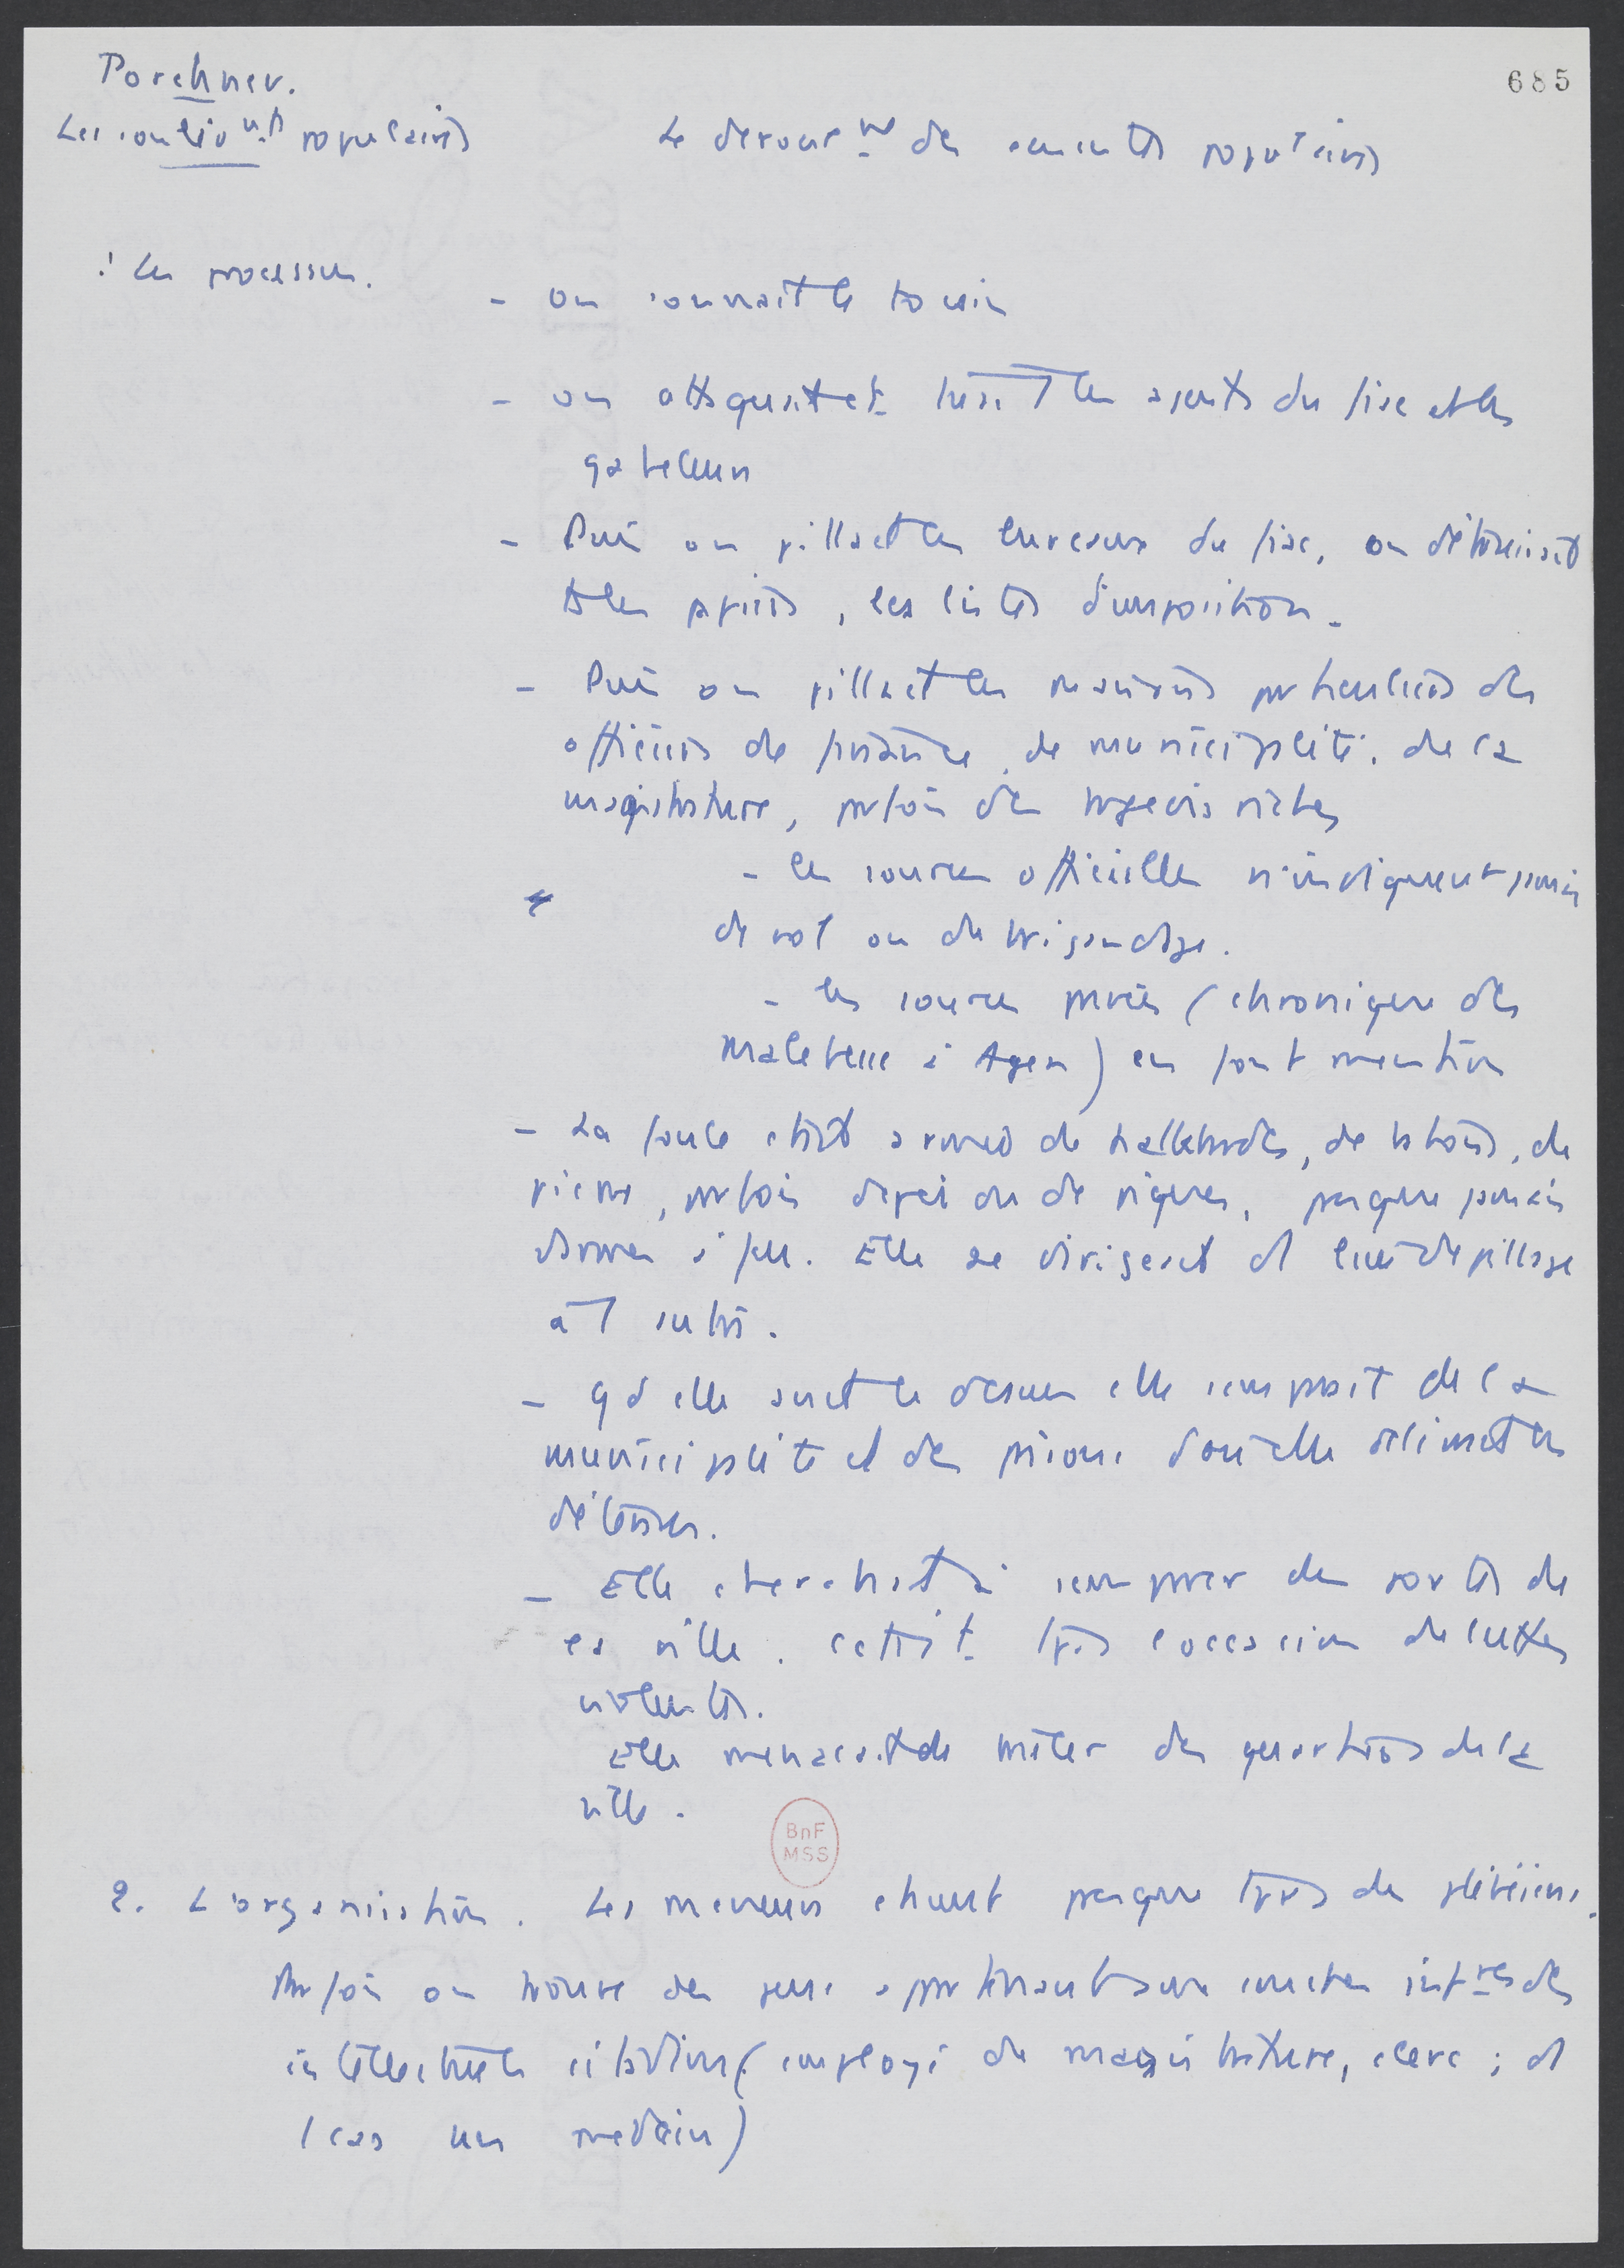 Porchnev.
685
Les soulèvnts populaires
Le déroulnt des émeutes populaires
1 Les processus.
- on sonnait le tocsin
- on attaquait et tuait les agents du fisc et les
gabeleurs
- Puis on pillait les bureaux du fisc, on détruisait
ts les papiers, les listes d'imposition.
- Puis on pillait les maisons particulières des
officiers de finance, de municipalité, de la
magistrature, parfois des bourgeois riches
- les sources officielles n'indiquent jamais
de vol ou de brigandage.
- les sources privées (chronique des
Malebesse à Agen) en font mention
- La foule était armée de hallebardes, de bâtons, de
pierres, parfois d'épées ou de piques, presque jamais
d'armes à feu. Elle se dirigeait d'1 lieu de pillage
à 1 autre.
- qd elle avait le dessus elle s'emparait de la
municipalité et des prisons d'où elle délivrait les
détenus.
- Elle cherchait à s'emparer des portes de
la ville. C'était tjrs l'occasion de luttes
violentes.
Elle menaçait de brûler des quartiers de la
ville.
BnF
MSS
2. L'organisation. Les meneurs étaient presque tjrs des plébéiens.
Parfois on trouve des gens appartenant aux couches infres des
intellectuels citadins (employé de magistrature, clerc ; ds
1 cas un médecin)